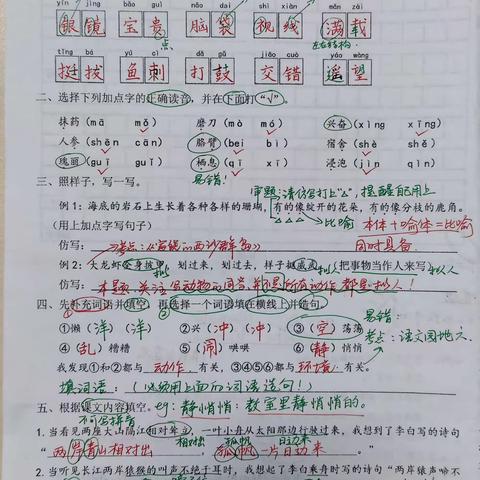 yín jìng bǎo guì nǎo dai shì xiàn mǎn zài
眼镜 宝贵 脑袋 视线 满载
点 左右结构
tǐng bá yú cì dǎ gǔ jiāo cuò yáo wàng
挺拔 鱼刺 打鼓 交错 遥望
二、选择下列加点字的正确读音，并在下面打“√”。
抹药（mā mǒ） 磨刀（mò mó） 兴奋（xìng xīng）
人参（shēn cān） 胳臂（bei bì） 宿舍（shè shě）
瑰丽（guī guǐ） 栖息（qī xī） 浸泡（jìn qìn）
易错！
三、照样子，写一写。
审题：请仿写打上“△”，提醒自己用上
例1：海底的岩石上生长着各种各样的珊瑚，有的像绽开的花朵，有的像分枝的鹿角。
（用上加点字写句子） 比喻 本体+喻体=比喻
仿写： 考点：《富饶的西沙群岛》 同时具备
例2：大龙虾全身披甲，划过来，划过去，样子挺威武。拟人（把事物当作人来写）拟人
仿写：本题，关注写动物的词，并不是所有动作都是拟人！
四、先补充词语并填空，再选择一个词语填在横线上并造句。
易错：
①懒（洋）（洋） ②兴（冲）（冲） ③（空）荡荡
考点：语文园地六
④（乱）糟糟 ⑤（闹）哄哄 ⑥（静）悄悄
我发现①和②都与 动作 有关，③④⑤⑥都与 环境 有关。
填词语：（必须用上面的词语造句！）
五、根据课文内容填空。eg：静悄悄：教室里静悄悄的。
不可写拼音
1.当看见两座大山隔江相对耸立，一叶小舟从太阳那边行驶过来，我想到了李白写的诗句
相对出 孤帆 日边来
“两岸青山相对出，孤帆一片日边来”
2.当听见长江两岸猿猴的叫声不绝于耳时，我想起了李白乘舟时写的诗句“两岸猿声啼不